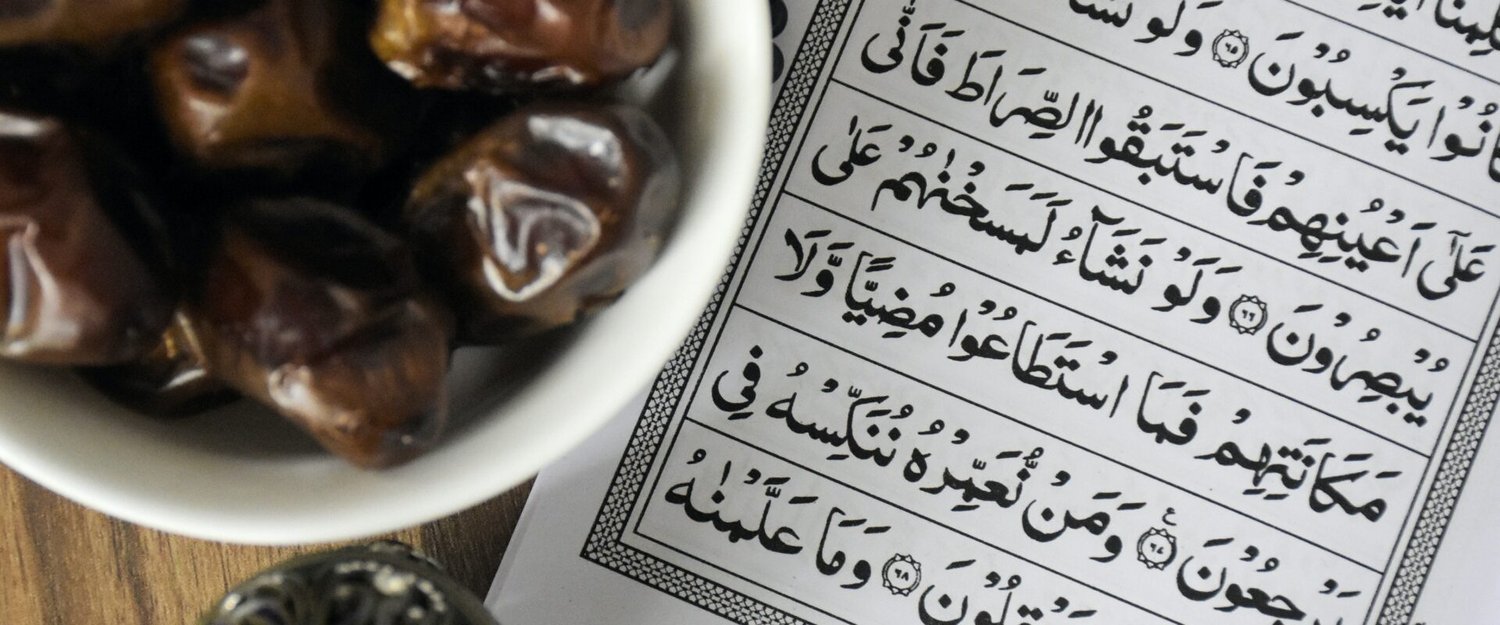 كَانُوْا يَكْسِبُوْنَ ٦٥ وَلَوْ
عَلٰٓى اَعْيُنِهِمْ فَاسْتَبَقُوا الصِّرَاطَ فَاَنّٰى
يُبْصِرُوْنَ ٦٦ وَلَوْ نَشَآءُ لَمَسَخْنٰهُمْ عَلٰى
مَكَانَتِهِمْ فَمَا اسْتَطَاعُوْا مُضِيًّا وَّلَا
يَرْجِعُوْنَ ٦٧ وَمَنْ نُّعَمِّرْهُ نُنَكِّسْهُ فِى
يَعْقِلُوْنَ ٦٨ وَمَا عَلَّمْنٰهُ